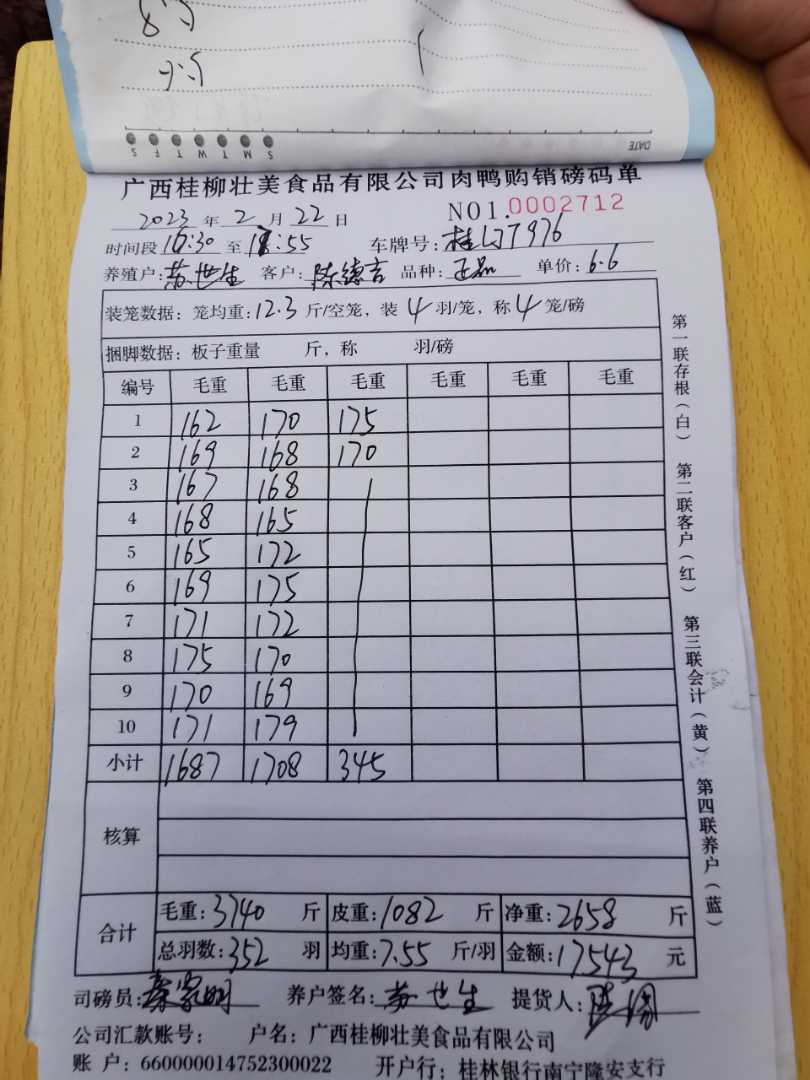 S M T W T F S
DATE
广西桂柳壮美食品有限公司肉鸭购销磅码单
2023 年 2 月 22 日 NO1.0002712
时间段 16:30 至 18:55 车牌号:
养殖户:苏世生 客户:陈德吉 品种:正品 单价:6.6
装笼数据:笼均重:12.3 斤/空笼,装 4 羽/笼,称 4 笼/磅
捆脚数据:板子重量 斤,称 羽/磅
编号 毛重 毛重 毛重 毛重 毛重 毛重
1 162 170 175
2 169 168 170
3 167 168
4 168 165
5 165 172
6 169 175
7 171 172
8 175 170
9 170 169
10 171 179
小计 1687 1708 345
核算
合计
毛重:3740 斤 皮重:1082 斤 净重:2658 斤
总羽数:352 羽 均重:7.55 斤/羽 金额:17543 元
司磅员:秦家明 养户签名:苏世生 提货人:
公司汇款账号: 户名:广西桂柳壮美食品有限公司
账 户:660000014752300022 开户行:桂林银行南宁隆安支行
第一联存根(白) 第二联客户(红) 第三联会计(黄) 第四联养户(蓝)